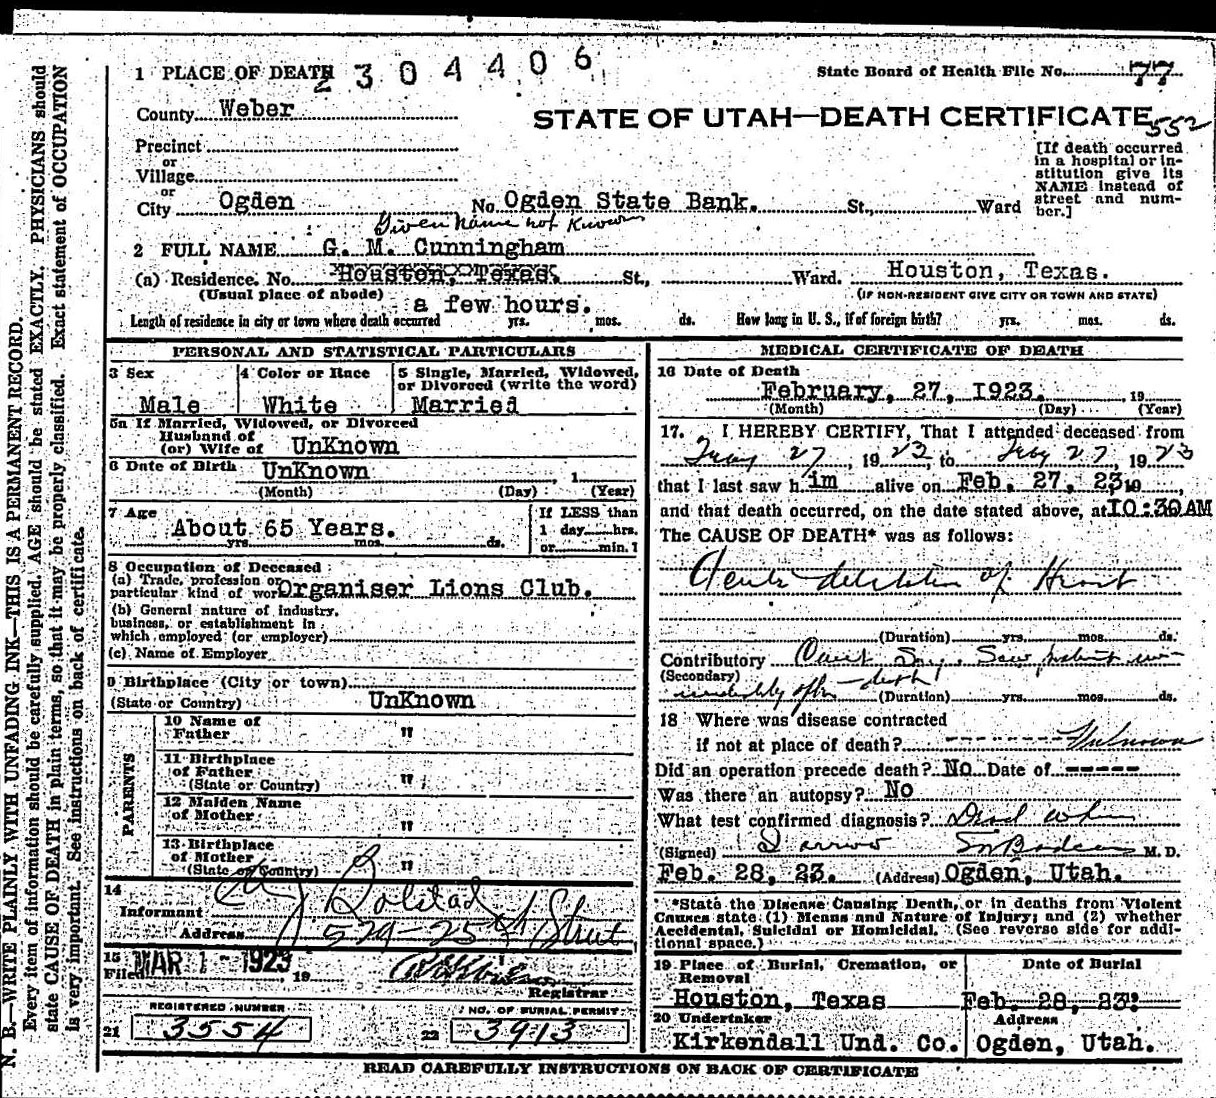 1 PLACE OF DEATH 2304406
State Board of Health File No. 77
County Weber
STATE OF UTAH—DEATH CERTIFICATE 552
Precinct
or
Village
or
City Ogden No Ogden State Bank. St., Ward
[If death occurred in a hospital or in-
stitution give its
NAME instead of
street and num-
ber.]
Given Name not Known
2 FULL NAME G. M. Cunningham
(a) Residence. No. Houston, Texas. St., Ward. Houston, Texas.
(Usual place of abode) (IF NON-RESIDENT GIVE CITY OR TOWN AND STATE)
a few hours.
Length of residence in city or town where death occurred yrs. mos. ds. How long in U. S., if of foreign birth? yrs. mos. ds.
PERSONAL AND STATISTICAL PARTICULARS
3 Sex 4 Color or Race 5 Single, Married, Widowed,
or Divorced (write the word)
Male White Married
5a If Married, Widowed, or Divorced
Husband of
(or) Wife of UnKnown
6 Date of Birth UnKnown , 1
(Month) (Day) (Year)
7 Age If LESS than
About 65 Years. 1 day hrs.
yrs. mos. ds. or min.?
8 Occupation of Deceased
(a) Trade, profession or
particular kind of work Organiser Lions Club.
(b) General nature of industry,
business, or establishment in
which employed (or employer)
(c) Name of Employer
9 Birthplace (City or town)
(State or Country) UnKnown
PARENTS
10 Name of
Father "
11 Birthplace
of Father
(State or Country) "
12 Maiden Name
of Mother "
13 Birthplace
of Mother
(State or Country) "
14
Informant
Address 529-25th Street
15
Filed MAR 1 - 1923 19
Registrar
REGISTERED NUMBER NO. OF BURIAL PERMIT
21 3554 22 3913
MEDICAL CERTIFICATE OF DEATH
16 Date of Death
February, 27, 1923. , 19
(Month) (Day) (Year)
17. I HEREBY CERTIFY, That I attended deceased from
27, 1923, to Feby 27, 1923
that I last saw him alive on Feb. 27, 23, 19
and that death occurred, on the date stated above, at 10:30AM
The CAUSE OF DEATH* was as follows:
Acute dilatation of Heart
(Duration) yrs. mos. ds.
Contributory Can't Say. Saw patient im-
(Secondary)
mediately after death (Duration) yrs. mos. ds.
18 Where was disease contracted
if not at place of death? - - - - - - - Unknown
Did an operation precede death? No Date of -----
Was there an autopsy? No
What test confirmed diagnosis? Dead when
(Signed) M. D.
Feb. 28, 23. (Address) Ogden, Utah.
*State the Disease Causing Death, or in deaths from Violent
Causes state (1) Means and Nature of Injury; and (2) whether
Accidental, Suicidal or Homicidal. (See reverse side for addi-
tional space.)
19 Place of Burial, Cremation, or Date of Burial
Removal
Houston, Texas Feb. 28, 23.
20 Undertaker Address
Kirkendall Und. Co. Ogden, Utah.
READ CAREFULLY INSTRUCTIONS ON BACK OF CERTIFICATE
N. B.—WRITE PLAINLY WITH UNFADING INK—THIS IS A PERMANENT RECORD.
Every item of information should be carefully supplied. AGE should be stated EXACTLY. PHYSICIANS should
state CAUSE OF DEATH in plain terms, so that it may be properly classified. Exact statement of OCCUPATION
is very important. See instructions on back of certificate.